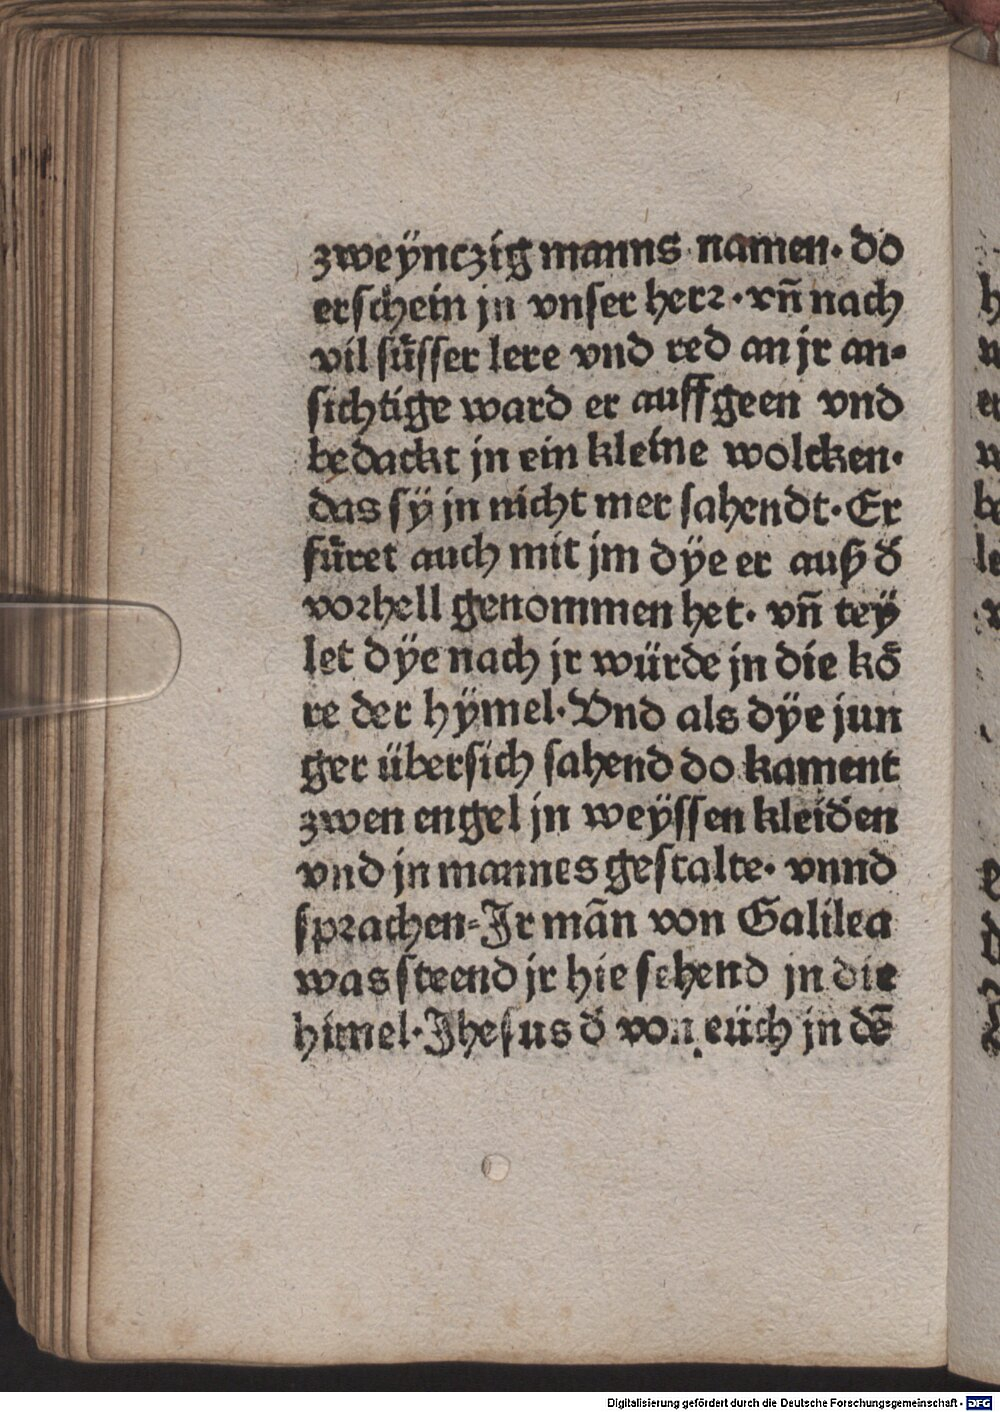 zweÿnczig manns namen· do
erschein jn vnser herꝛ·vñ nach
vil süsser lere vnd red an jr an⸗
sichtige ward er auffgeen vnd
bedackt jn ein kleine wolcken·
das sÿ jn nicht mer sahendt·Er
füret auch mit jm dÿe er auß d̄
voꝛhell genommen het· vñ tey
let dÿe nach jr würde jn die kö
re der hÿmel·Vnd als dÿe jun
ger übersich sahend do kament
zwen engel jn weÿssen kleiden
vnd jn mannes gestalte· vnnd
spꝛachen⸗Jr mãn von Galilea
was steend jr hie sehend jn die
himel·Jhesus d̄ von eüch jn dē
Digitalisierung gefördert durch die Deutsche Forschungsgemeinschaft - DFG